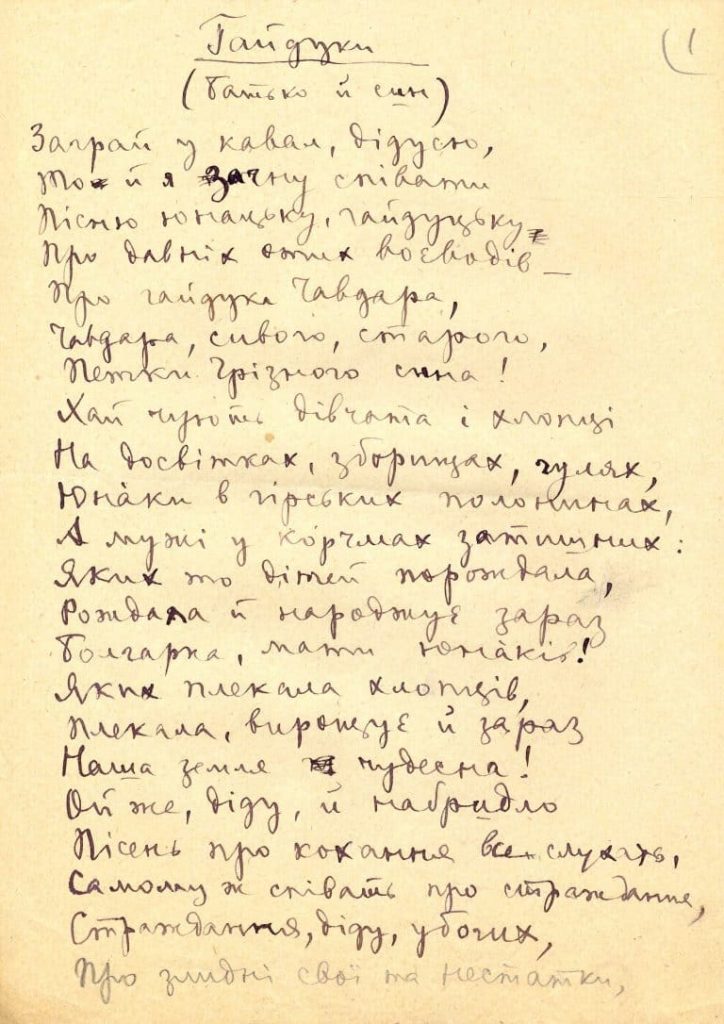 Гайдуки
(1
(Батько й син)
Заграй у кавал, дідусю,
То й я зачну співати
Пісню юнацьку, гайдуцьку
Про давніх воєводів —
Про гайдука Чавдара,
Чавдара, сивого, старого,
Петки Грізного сина!
Хай чують дівчата і хлопці
На досвітках, зборищах, гулях,
Юна́ки в гірських полонинах,
А мужі у ко́рчмах затишних:
Яких то дітей порождала,
Рождала й народжує зараз
Болгарка, мати юна́ків!
Яких плекала хлопців,
Плекала, вирощує й зараз
Наша земля чудесна!
Ой же, діду, й набридло
Пісень про кохання все слухать,
Самому ж співать про страждання,
Страждання, діду, убогих,
Про злидні свої та нестатки,